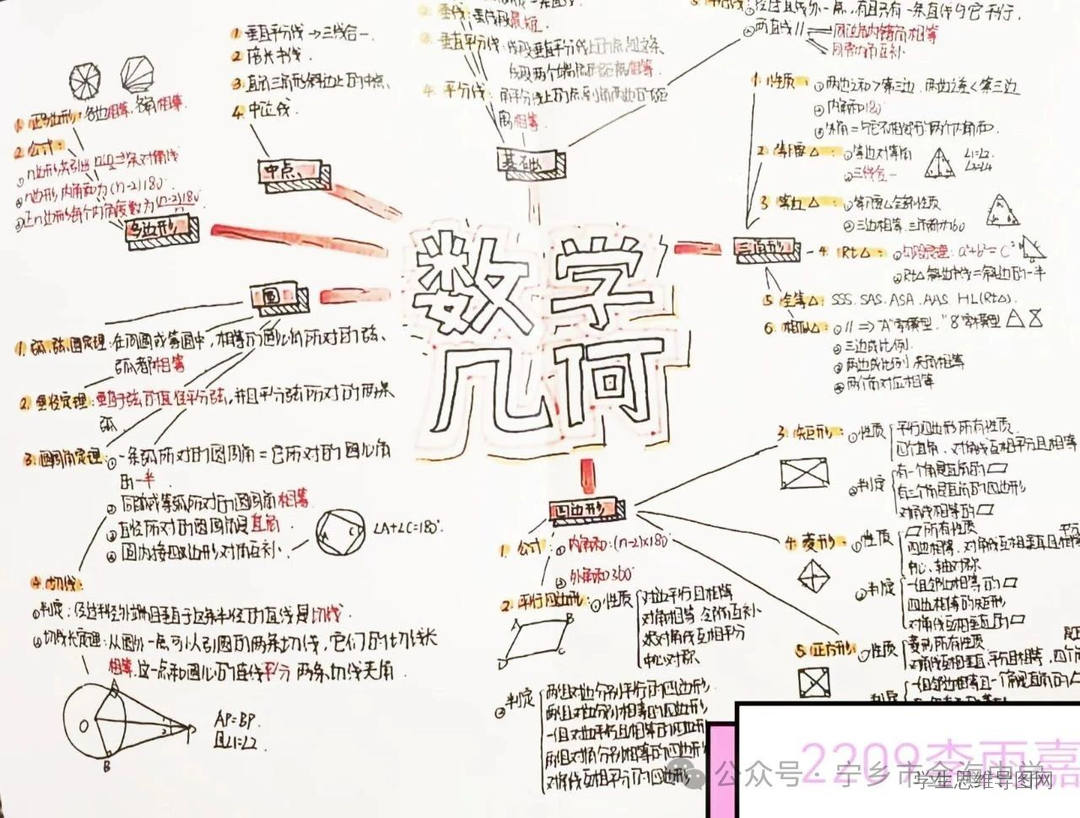 数学
几何
中点
1 垂直平分线→三线合一.
2 倍长中线.
3 直角三角形斜边上的中点.
4 中位线.
多边形
1 正多边形: 各边相等, 各角相等.
2 公式:
② n边形内角和为(n-2)180°
基础
最短
2 垂直平分线:
相等.
4 平分线:
相等.
经过直线外一点, 有且只有一条直线与它平行.
两直线//
同位角内错角相等
同旁内角互补
三角形
1 性质: ① 两边之和>第三边, 两边之差<第三边
② 内角和180
2 等腰△: ① 等边对等角 ∠1=∠2
② 三线合一
3 等边△
② 三边相等, 三角都为60
4 Rt△: ① 勾股定理: a²+b²=C²
② Rt△斜边中线=斜边的一半
5 全等△: SSS. SAS. ASA. AAS. HL(Rt△).
6 相似△: ① // => "A"字模型. "8"字模型
② 三边成比例.
③ 两边成比例 夹角相等
④ 两个角对应相等
圆
1. 弧,弦,圆定理: 在同圆或等圆中, 相等的圆心角所对的弦、
弧都相等
2. 垂径定理: 垂直于弦的直径平分弦, 并且平分弦所对的两条
弧.
3 圆周角定理: ① 一条弧所对的圆周角=它所对的圆心角
的一半.
② 同弧或等弧所对的圆周角相等
③ 直径所对的圆周角是直角.
④ 圆内接四边形对角互补. ∠A+∠C=180°.
4 切线:
①判定: 经过半径外端且垂直于这条半径的直线是切线.
②切线长定理: 从圆外一点可以引圆的两条切线, 它们的切线长
相等. 这一点和圆心的连线平分两条切线夹角.
A
O
P
B
AP=BP.
且∠1=∠2.
四边形
1. 公式: ① 内角和: (n-2)×180°
② 外角和360°
2. 平行四边形: ① 性质
对边平行且相等
对角相等, 邻角互补
对角线互相平分
中心对称
② 判定
两组对边分别平行的四边形.
两组对边分别相等的四边形
一组对边平行且相等的四边形
两组对角分别相等的四边形
对角线互相平分的四边形
3 矩形: ① 性质
平行四边形所有性质.
四个直角, 对角线互相平分且相等
② 判定
有一个角是直角的▱
有三个角是直角的四边形
对角线相等的▱
4 菱形: ① 性质
▱所有性质
四边相等, 对角线互相垂直且
中心, 轴对称
② 判定
一组邻边相等的▱
对角线互相垂直的▱
5 正方形: ① 性质
对角线相等垂直, 平分且相等, 四个
② 判定
一组邻边相等且一个角是直角的▱
2209李雨嘉
公众号·宁乡市金海中学
学生思维导图网